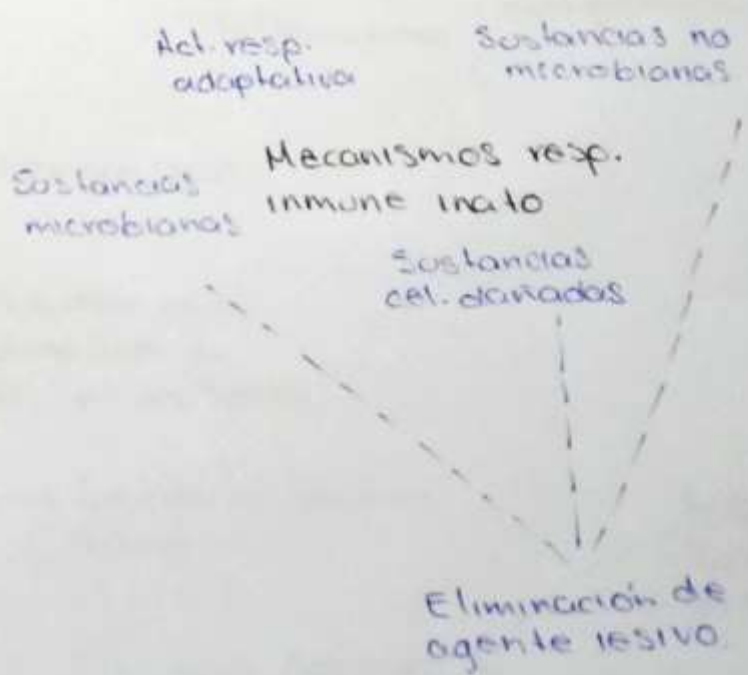 Act. resp.
adaptativa
Sustancias no
microbianas
Mecanismos resp.
inmune inato
Sustancias
microbianas
Sustancias
cel. dañadas
Eliminación de
agente lesivo.